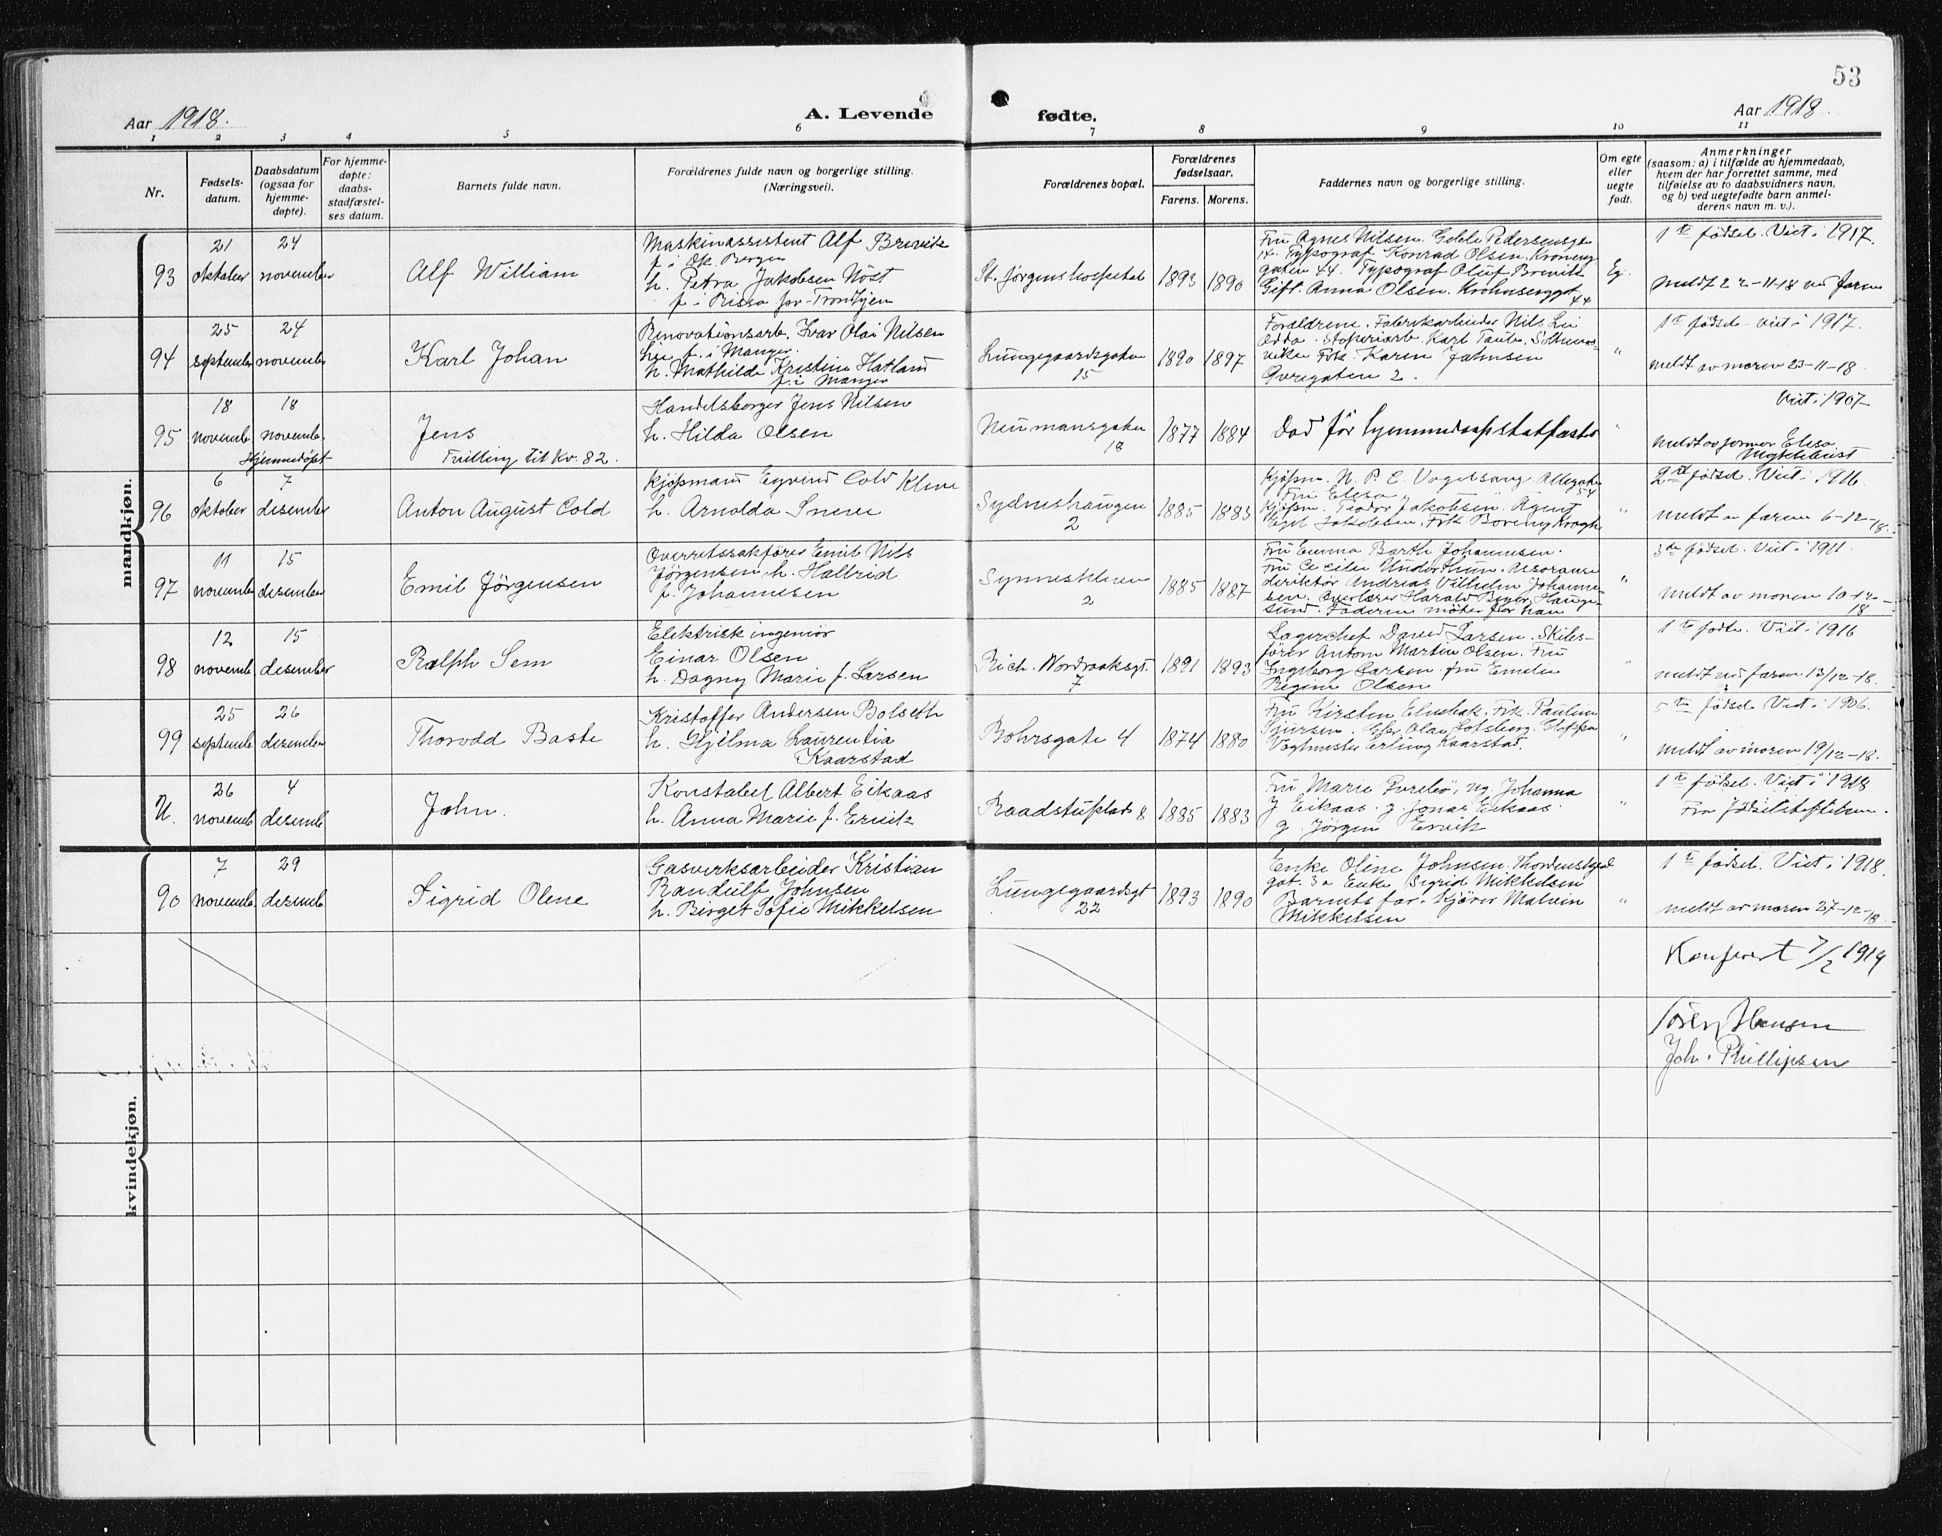 53
Aar 1918.
A. Levende
fødte.
Aar 1918.
1 2 3 4 5 6 7 8 9 10 11
Nr.
Fødsels-
datum.
Daabsdatum
(ogsaa for
hjemme-
døpte).
For hjemme-
døpte:
daabs-
stadfæstel-
ses datum.
Barnets fulde navn.
Forældrenes fulde navn og borgerlige stilling.
(Næringsvei).
Forældrenes bopæl.
Forældrenes
fødselsaar.
Farens. Morens.
Faddernes navn og borgerlige stilling.
Om egte
eller
uegte
født.
Anmerkninger
(saasom: a) i tilfælde av hjemmedaab,
hvem der har forrettet samme, med
tilføielse av to daabsvidners navn,
og b) ved uegtefødte barn anmel-
derens navn m. v.).
mandkjøn.
93
21
oktober
24
november
Alf William
Maskinassistent Alf Brevik
f. i Bergen
h. Petra Jakobsen Nöst
f. i Rissa pr. Trondhjem
St. Jørgens hospital
1893 1890
Fru Agnes Nilsen. Gelde Pedersensgt
14. Typograf Konrad Olsen. Kroneng
gaten 44. Typograf Oluf Brevik
Gift. Anna Olsen. Krohnenggt
44
Eg.
1ste fødsel. Viet i 1917.
meldt 22-11-18 ved faren
94
25
september
24
november
Karl Johan
Renovationsarb. Ivar Olai Nilsen
Lie f. i Manger.
h. Mathilde Kristine Hatland
f. i Manger
Lungegaardsgaten
15
1890 1897
Forældrene. Fabrikarbeider Nils Lie
Odda. Karl Taule,
Frk. Karen Jahnsen
Øvregaten 2.
"
1ste fødsel - viet i 1917.
meldt av moren 23-11-18.
95
18
novemb.
18
novemb.
Hjemmedöpt
Jens
Tvilling til Kv. 82.
Handelsborger Jens Nilsen
h. Hilda Olsen
Neumansgaten
18
1877 1884
Død før hjemmedaapstatfæstes
"
Viet i 1907
meldt av jormor Elisa
Myklebust
96
6
oktober
7
desember
Anton August Cold
kjöpmand Eyvind Cold Kleve
h. Arnolda Sneve
Sydneshaugen
2
1885 1883
Kjöpm. N. P. E. Vogelsang Allegaten
54
Fru Elisa
Kjöpm. Teodor Jakobsen. Agent
Jakobsen. Frk Krogh
"
2den fødsel. Viet i 1916.
meldt av faren 6-12-
18.
97
11
november
15
desember
Emil Jörgensen
Overretssakfører Emil Nils
Jörgensen h. Halbrid
f. Johannesen
Synneskleven
2
1885 1887
Fru Emma Barth Johannesen.
Fru Cecilie Underthun. Assuranse
direktör Andreas Vilhelm Johanne-
sen. Overlærer Harald Beyer, Hauge-
sund. Faderen möter for ham
"
3die fødsel. Viet i 1911.
meldt av moren 10-12-
18
98
12
novemb.
15
desember
Ralph Sem
Elektrisk ingeniør
Einar Olsen
h. Dagny Marie f. Larsen
Rich. Nordraaksgt.
7
1891 1893
Lagerchef David Larsen. Skibs-
fører Anton Martin Olsen. Fru
Ingeborg Larsen. fru Emilie
Regine Olsen
"
1ste fødte. Viet i 1916
meldt ved faren 13/12-18.
99
25
septemb.
26
desember
Thorvdd Baste
Kristoffer Andersen Bolseth
h. Hjelma Laurentia
Kaarstad
Bohrsgate 4
1874 1880
Fru Kirsten Frk. Pauline
Sjursen. Olai
Vogtmester Erling Kaarstad.
"
5te fødsel. Viet i 1906.
meldt av moren 19/12-18.
U.
26
novemb.
4
desemb.
John.
Konstabel Albert Eikaas
h. Anna Marie f. Ervik
Raadstuplads 8
1885 1883
Fru Marie ug. Johanna
J Eikaas. g. Jonas Eikaas.
g. Jörgen Ervik
"
1ste fødsel. Viet i 1918
Fra Fødselsstiftelsen.
kvindekjøn.
90
7
novemb.
29
desemb.
Sigrid Olene
Gasverksarbeider Kristian
Randulf Johnsen
h. Birget Sofie Mikkelsen
Lungegaardsgt
22
1893 1890
Enke Oline Johnsen.
gat. 3a Enke Sigrid Mikkelsen
Barnets far. Kjører Malvin
Mikkelsen
"
1ste fødsel. Viet i 1918.
meldt av moren 27-12-18.
Konferert 7/2 1919
Søren Hansen
Joh. Phillipsen